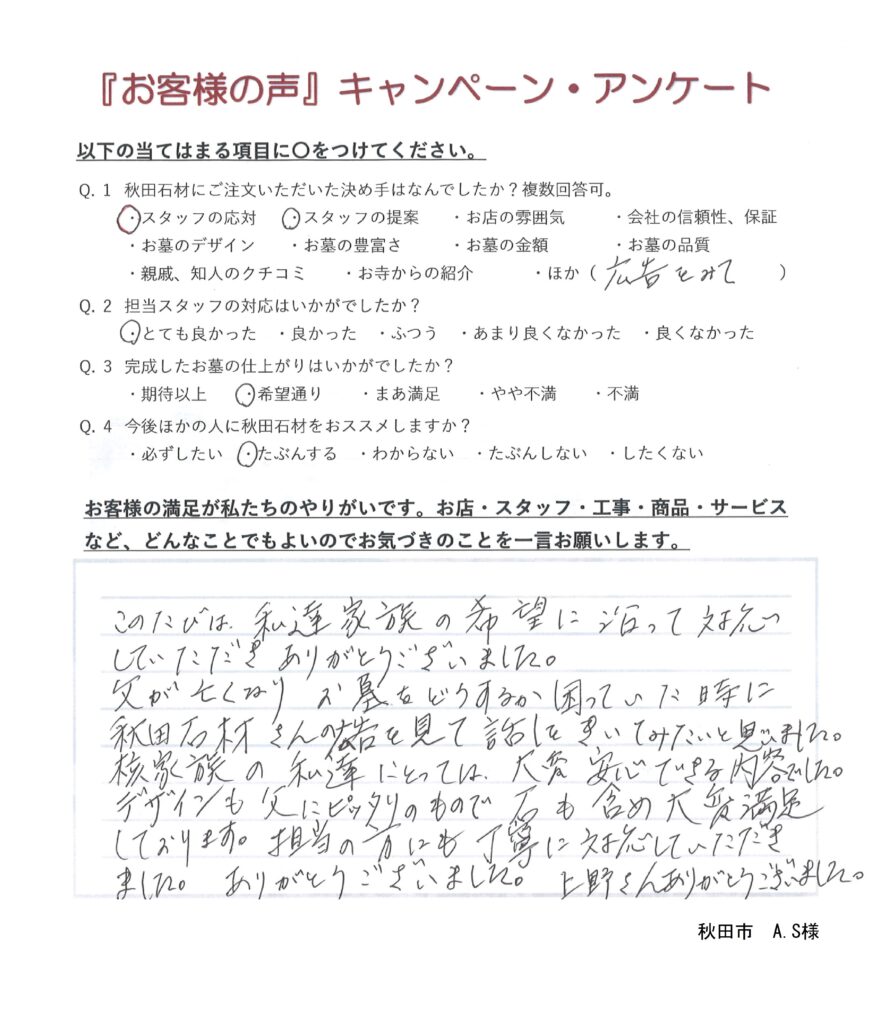 『お客様の声』キャンペーン・アンケート
以下の当てはまる項目に〇をつけてください。
Q. 1 秋田石材にご注文いただいた決め手はなんでしたか？複数回答可。
・スタッフの応対 ・スタッフの提案 ・お店の雰囲気 ・会社の信頼性、保証
・お墓のデザイン ・お墓の豊富さ ・お墓の金額 ・お墓の品質
・親戚、知人のクチコミ ・お寺からの紹介 ・ほか（ 広告をみて ）
Q. 2 担当スタッフの対応はいかがでしたか？
・とても良かった ・良かった ・ふつう ・あまり良くなかった ・良くなかった
Q. 3 完成したお墓の仕上がりはいかがでしたか？
・期待以上 ・希望通り ・まあ満足 ・やや不満 ・不満
Q. 4 今後ほかの人に秋田石材をおススメしますか？
・必ずしたい ・たぶんする ・わからない ・たぶんしない ・したくない
お客様の満足が私たちのやりがいです。お店・スタッフ・工事・商品・サービス
など、どんなことでもよいのでお気づきのことを一言お願いします。
このたびは、私達家族の希望に沿って対応
していただきありがとうございました。
父が亡くなり お墓をどうするか困っていた時に
秋田石材さんの広告を見て話しをきいてみたいと思いました。
核家族の私達にとっては、大変安心できる内容でした。
デザインも父にピッタリのもので石も含め大変満足
しております。担当の方にも丁寧に対応していただき
ました。 ありがとうございました。 上野さんありがとうございました。
秋田市 A.S様